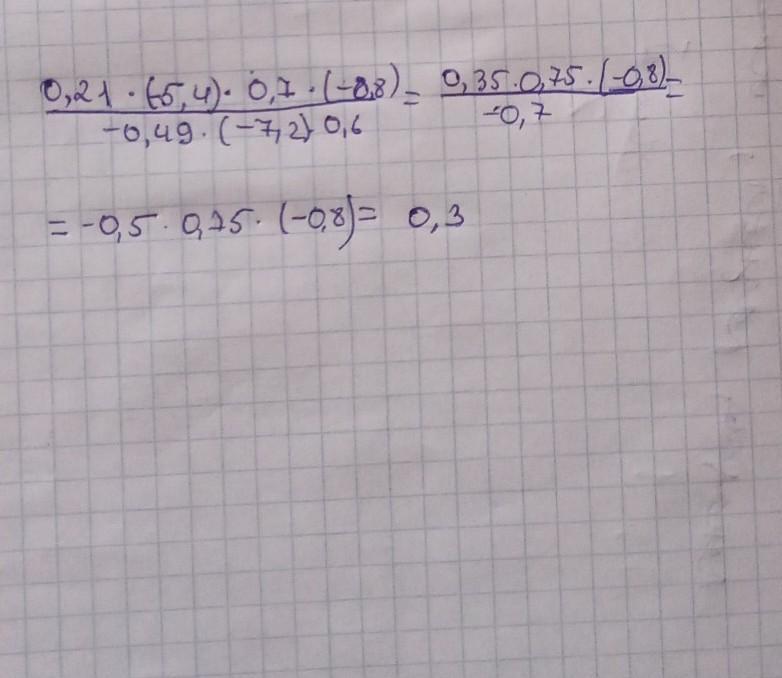 0,21 · (-5,4) · 0,7 · (-0,8) / -0,49 · (-7,2) · 0,6 = 0,35 · 0,75 · (-0,8) / -0,7 =
= -0,5 · 0,75 · (-0,8) = 0,3